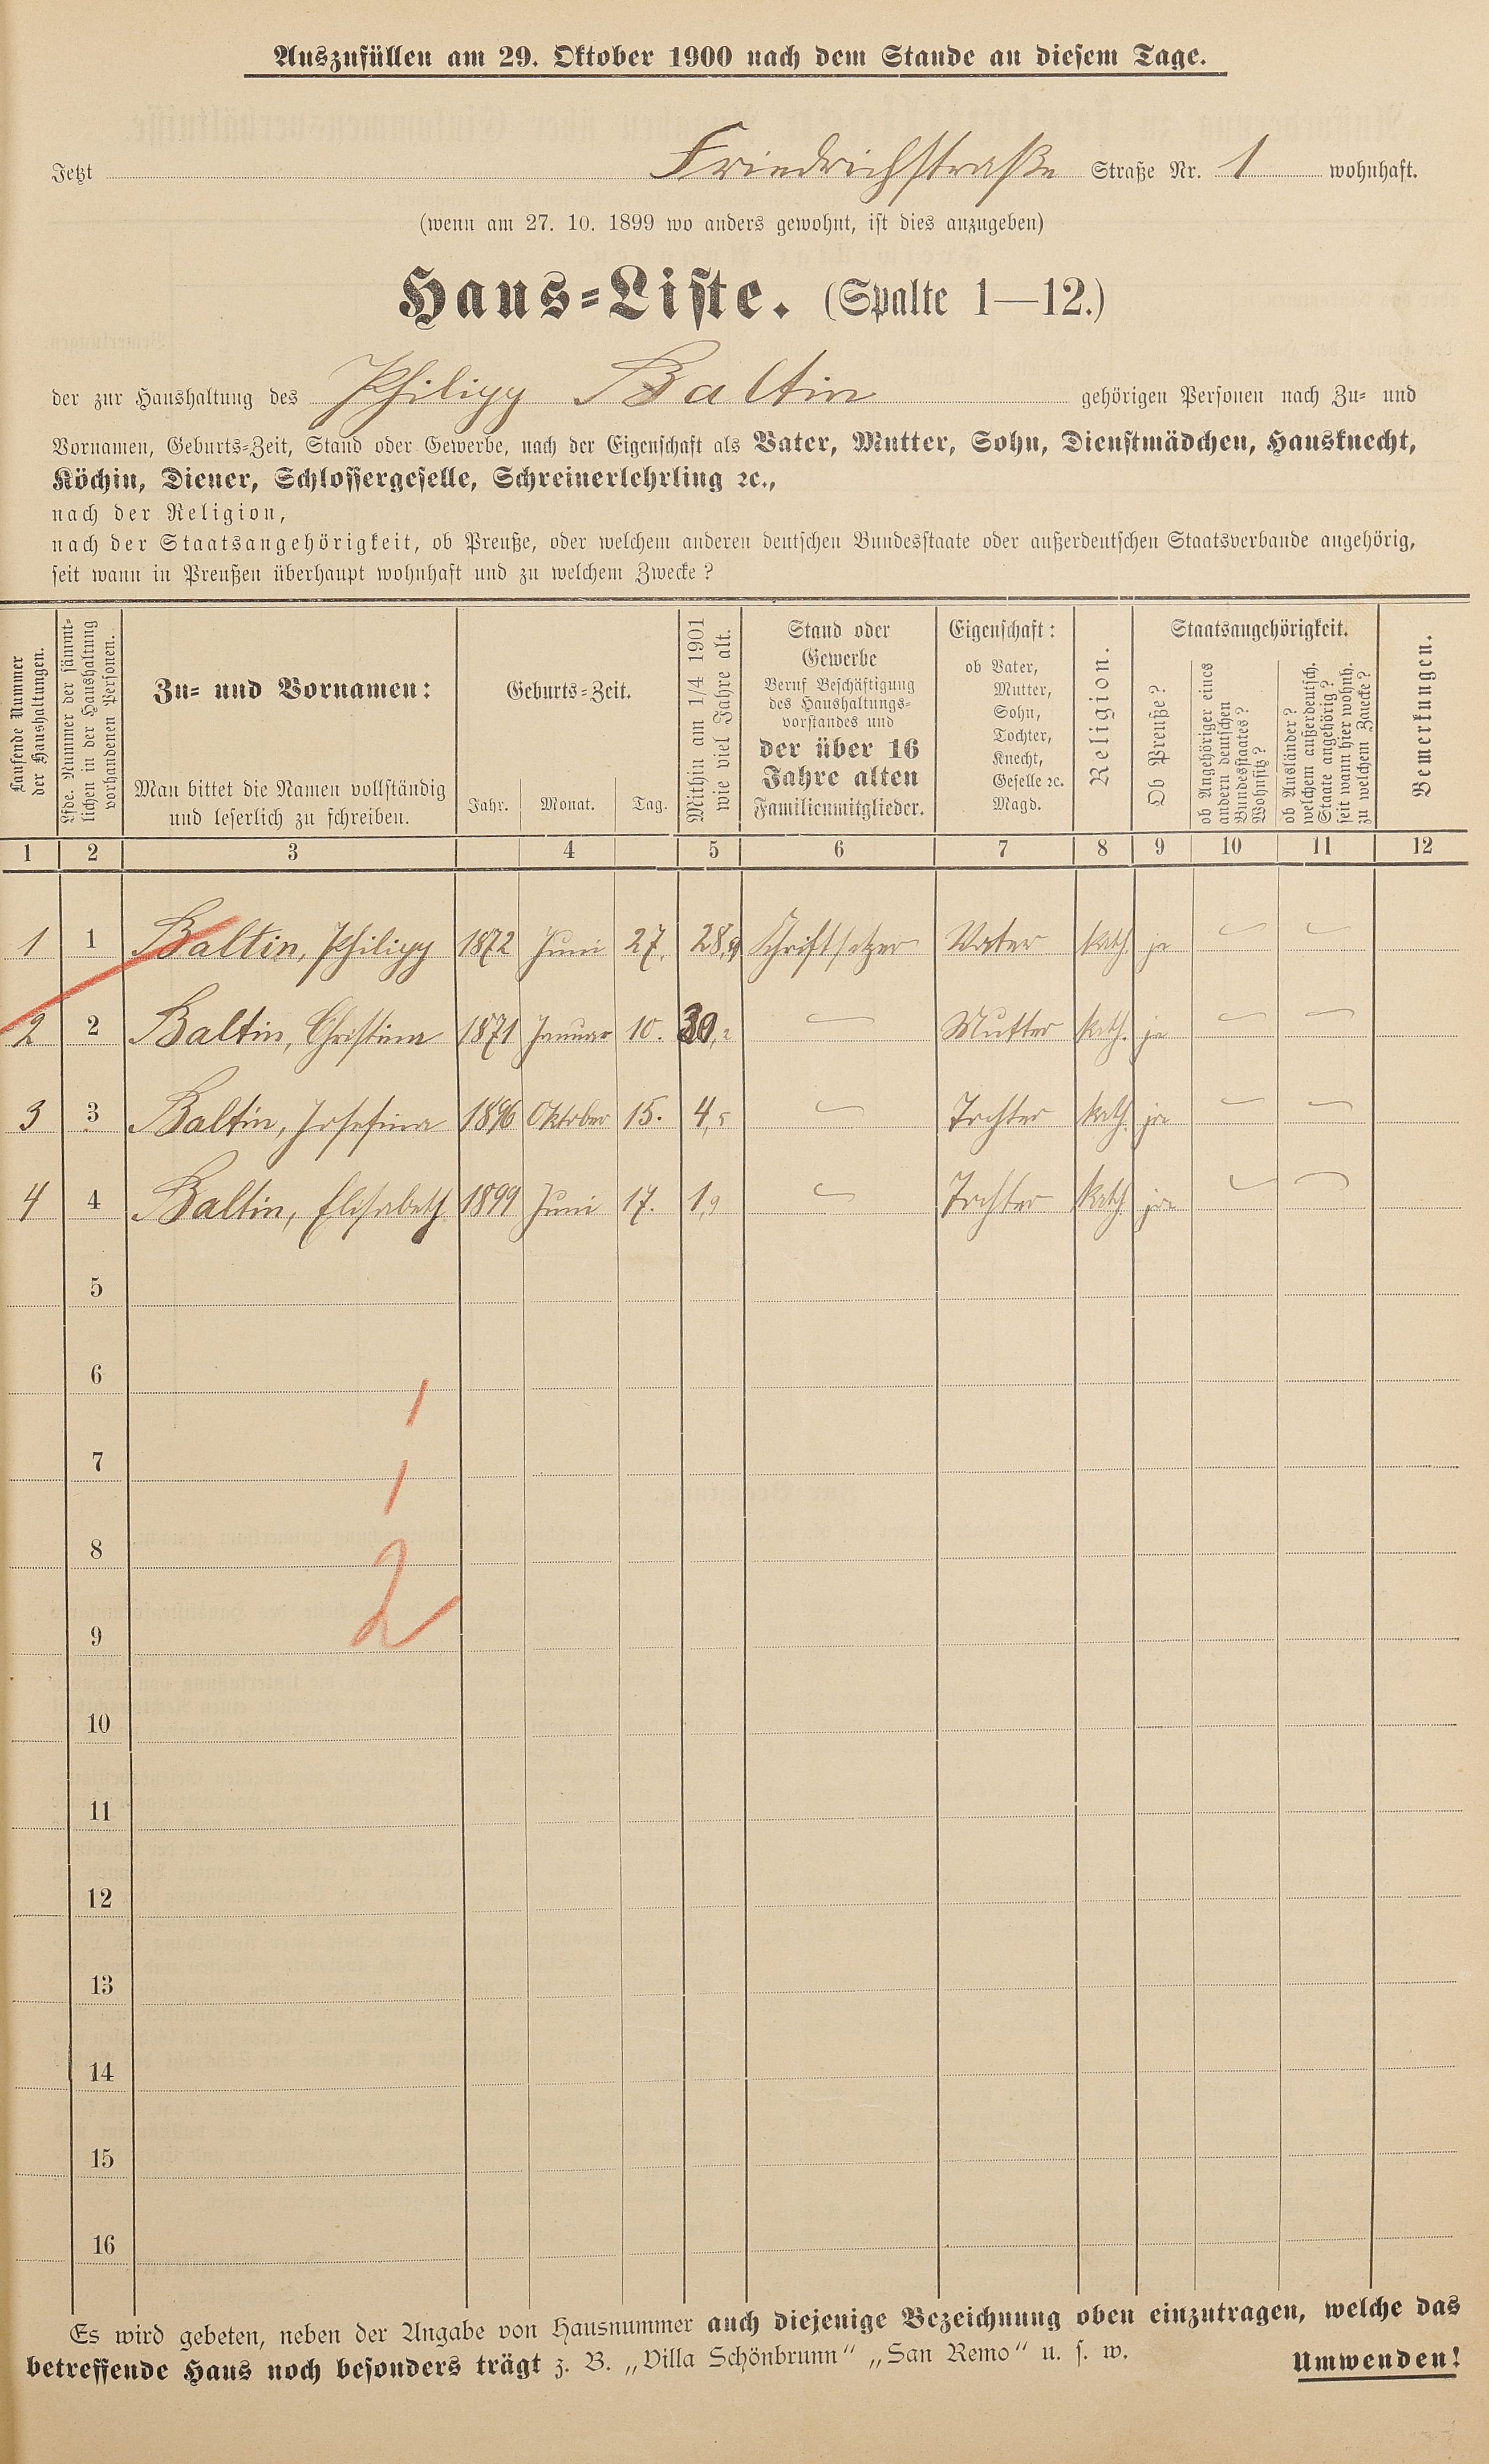 Auszufüllen am 29. Oktober 1900 nach dem Stande an diesem Tage.
Jetzt Friedrichstraße Straße Nr. 1 wohnhaft.
(wenn am 27. 10. 1899 wo anders gewohnt, ist dies anzugeben)
Haus-Liste. (Spalte 1—12.)
der zur Haushaltung des Philipp Baltin gehörigen Personen nach Zu- und
Vornamen, Geburts-Zeit, Stand oder Gewerbe, nach der Eigenschaft als Vater, Mutter, Sohn, Dienstmädchen, Hausknecht,
Köchin, Diener, Schlossergeselle, Schreinerlehrling ꝛc.,
nach der Religion,
nach der Staatsangehörigkeit, ob Preuße, oder welchem anderen deutschen Bundesstaate oder außerdeutschen Staatsverbande angehörig,
seit wann in Preußen überhaupt wohnhaft und zu welchem Zwecke?
Laufende Nummer
der Haushaltungen.
Lfde. Nummer der sämmt-
lichen in der Haushaltung
vorhandenen Personen.
Zu- und Vornamen:
Man bittet die Namen vollständig
und leserlich zu schreiben.
Geburts-Zeit.
Jahr. Monat. Tag.
Mithin am 1/4 1901
wie viel Jahre alt.
Stand oder
Gewerbe
Beruf Beschäftigung
des Haushaltungs-
vorstandes und
der über 16
Jahre alten
Familienmitglieder.
Eigenschaft:
ob Vater,
Mutter,
Sohn,
Tochter,
Knecht,
Geselle ꝛc.
Magd.
Religion.
Staatsangehörigkeit.
Ob Preuße?
ob Angehöriger eines
andern deutschen
Bundesstaates?
Wohnsitz?
ob Ausländer?
welchem außerdeutsch.
Staate angehörig?
seit wann hier wohnh.
zu welchem Zwecke?
Bemerkungen.
1 2 3 4 5 6 7 8 9 10 11 12
1 1 Baltin, Philipp 1872 Juni 27. 28,9 Schriftsetzer Vater kath. ja — —
2 2 Baltin, Christina 1871 Januar 10. 30,2 — Mutter kath. ja — —
3 3 Baltin, Josefina 1896 Oktober 15. 4,5 — Tochter kath. ja — —
4 4 Baltin, Elisabeth 1899 Juni 17. 1,9 — Tochter kath. ja — —
5
6
1
7
1
8
2
9
10
11
12
13
14
15
16
Es wird gebeten, neben der Angabe von Hausnummer auch diejenige Bezeichnung oben einzutragen, welche das
betreffende Haus noch besonders trägt z. B. „Villa Schönbrunn“ „San Remo“ u. s. w. Umwenden!